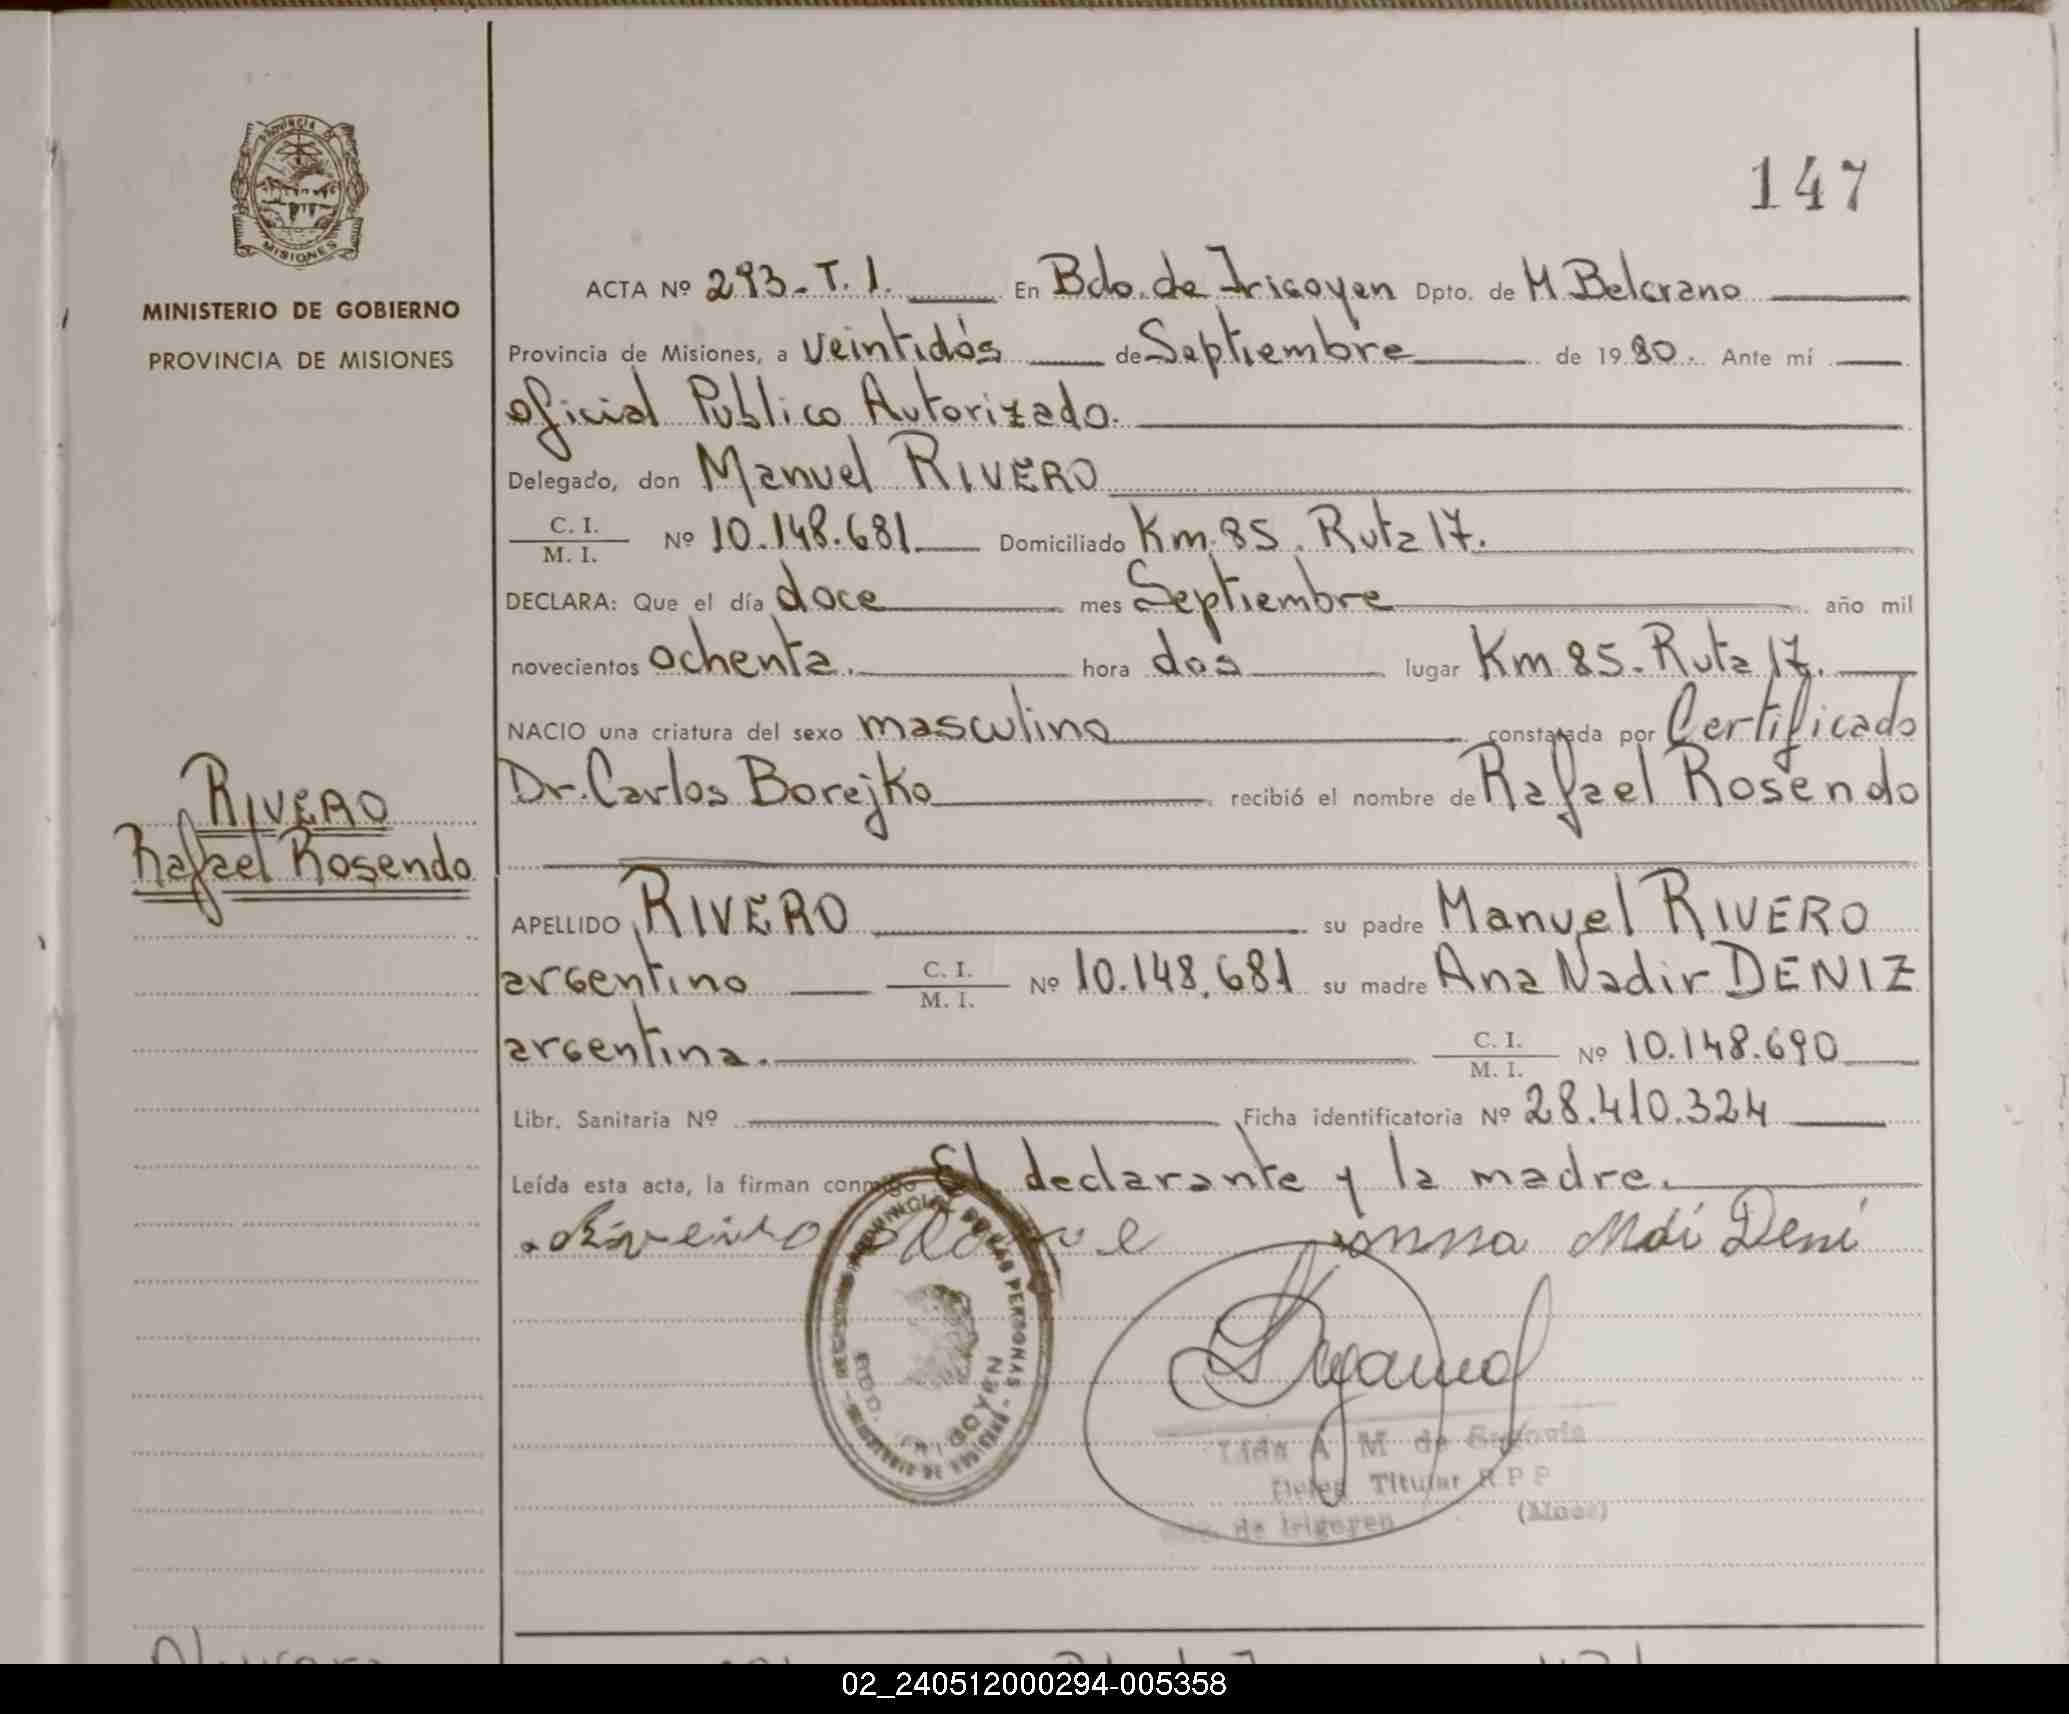 147
PROVINCIA DE
MISIONES
MINISTERIO DE GOBIERNO
PROVINCIA DE MISIONES
RIVERO
Rafael Rosendo
ACTA Nº 293-T. I. En Bdo. de Irigoyen Dpto. de M Belgrano
Provincia de Misiones, a veintidós de Septiembre de 19 80. Ante mí
oficial Publico Autorizado.
Delegado, don Manuel RIVERO
C. I.
M. I. Nº 10.148.681 Domiciliado Km 85. Ruta 17.
DECLARA: Que el día doce mes Septiembre año mil
novecientos ochenta. hora dos lugar Km 85. Ruta 17.
NACIO una criatura del sexo masculino constatada por Certificado
Dr. Carlos Borejko recibió el nombre de Rafael Rosendo
APELLIDO RIVERO su padre Manuel RIVERO
argentino C. I.
M. I. Nº 10.148.681 su madre Ana Nadir DENIZ
argentina. C. I.
M. I. Nº 10.148.690
Libr. Sanitaria Nº Ficha identificatoria Nº 28.410.324
Leída esta acta, la firman conmigo El declarante y la madre.
PROVINCIAL PERSONAS
BDO. IRIGOYEN
A M de
Titular R P P
de Irigoyen (Mnes)
02_240512000294-005358